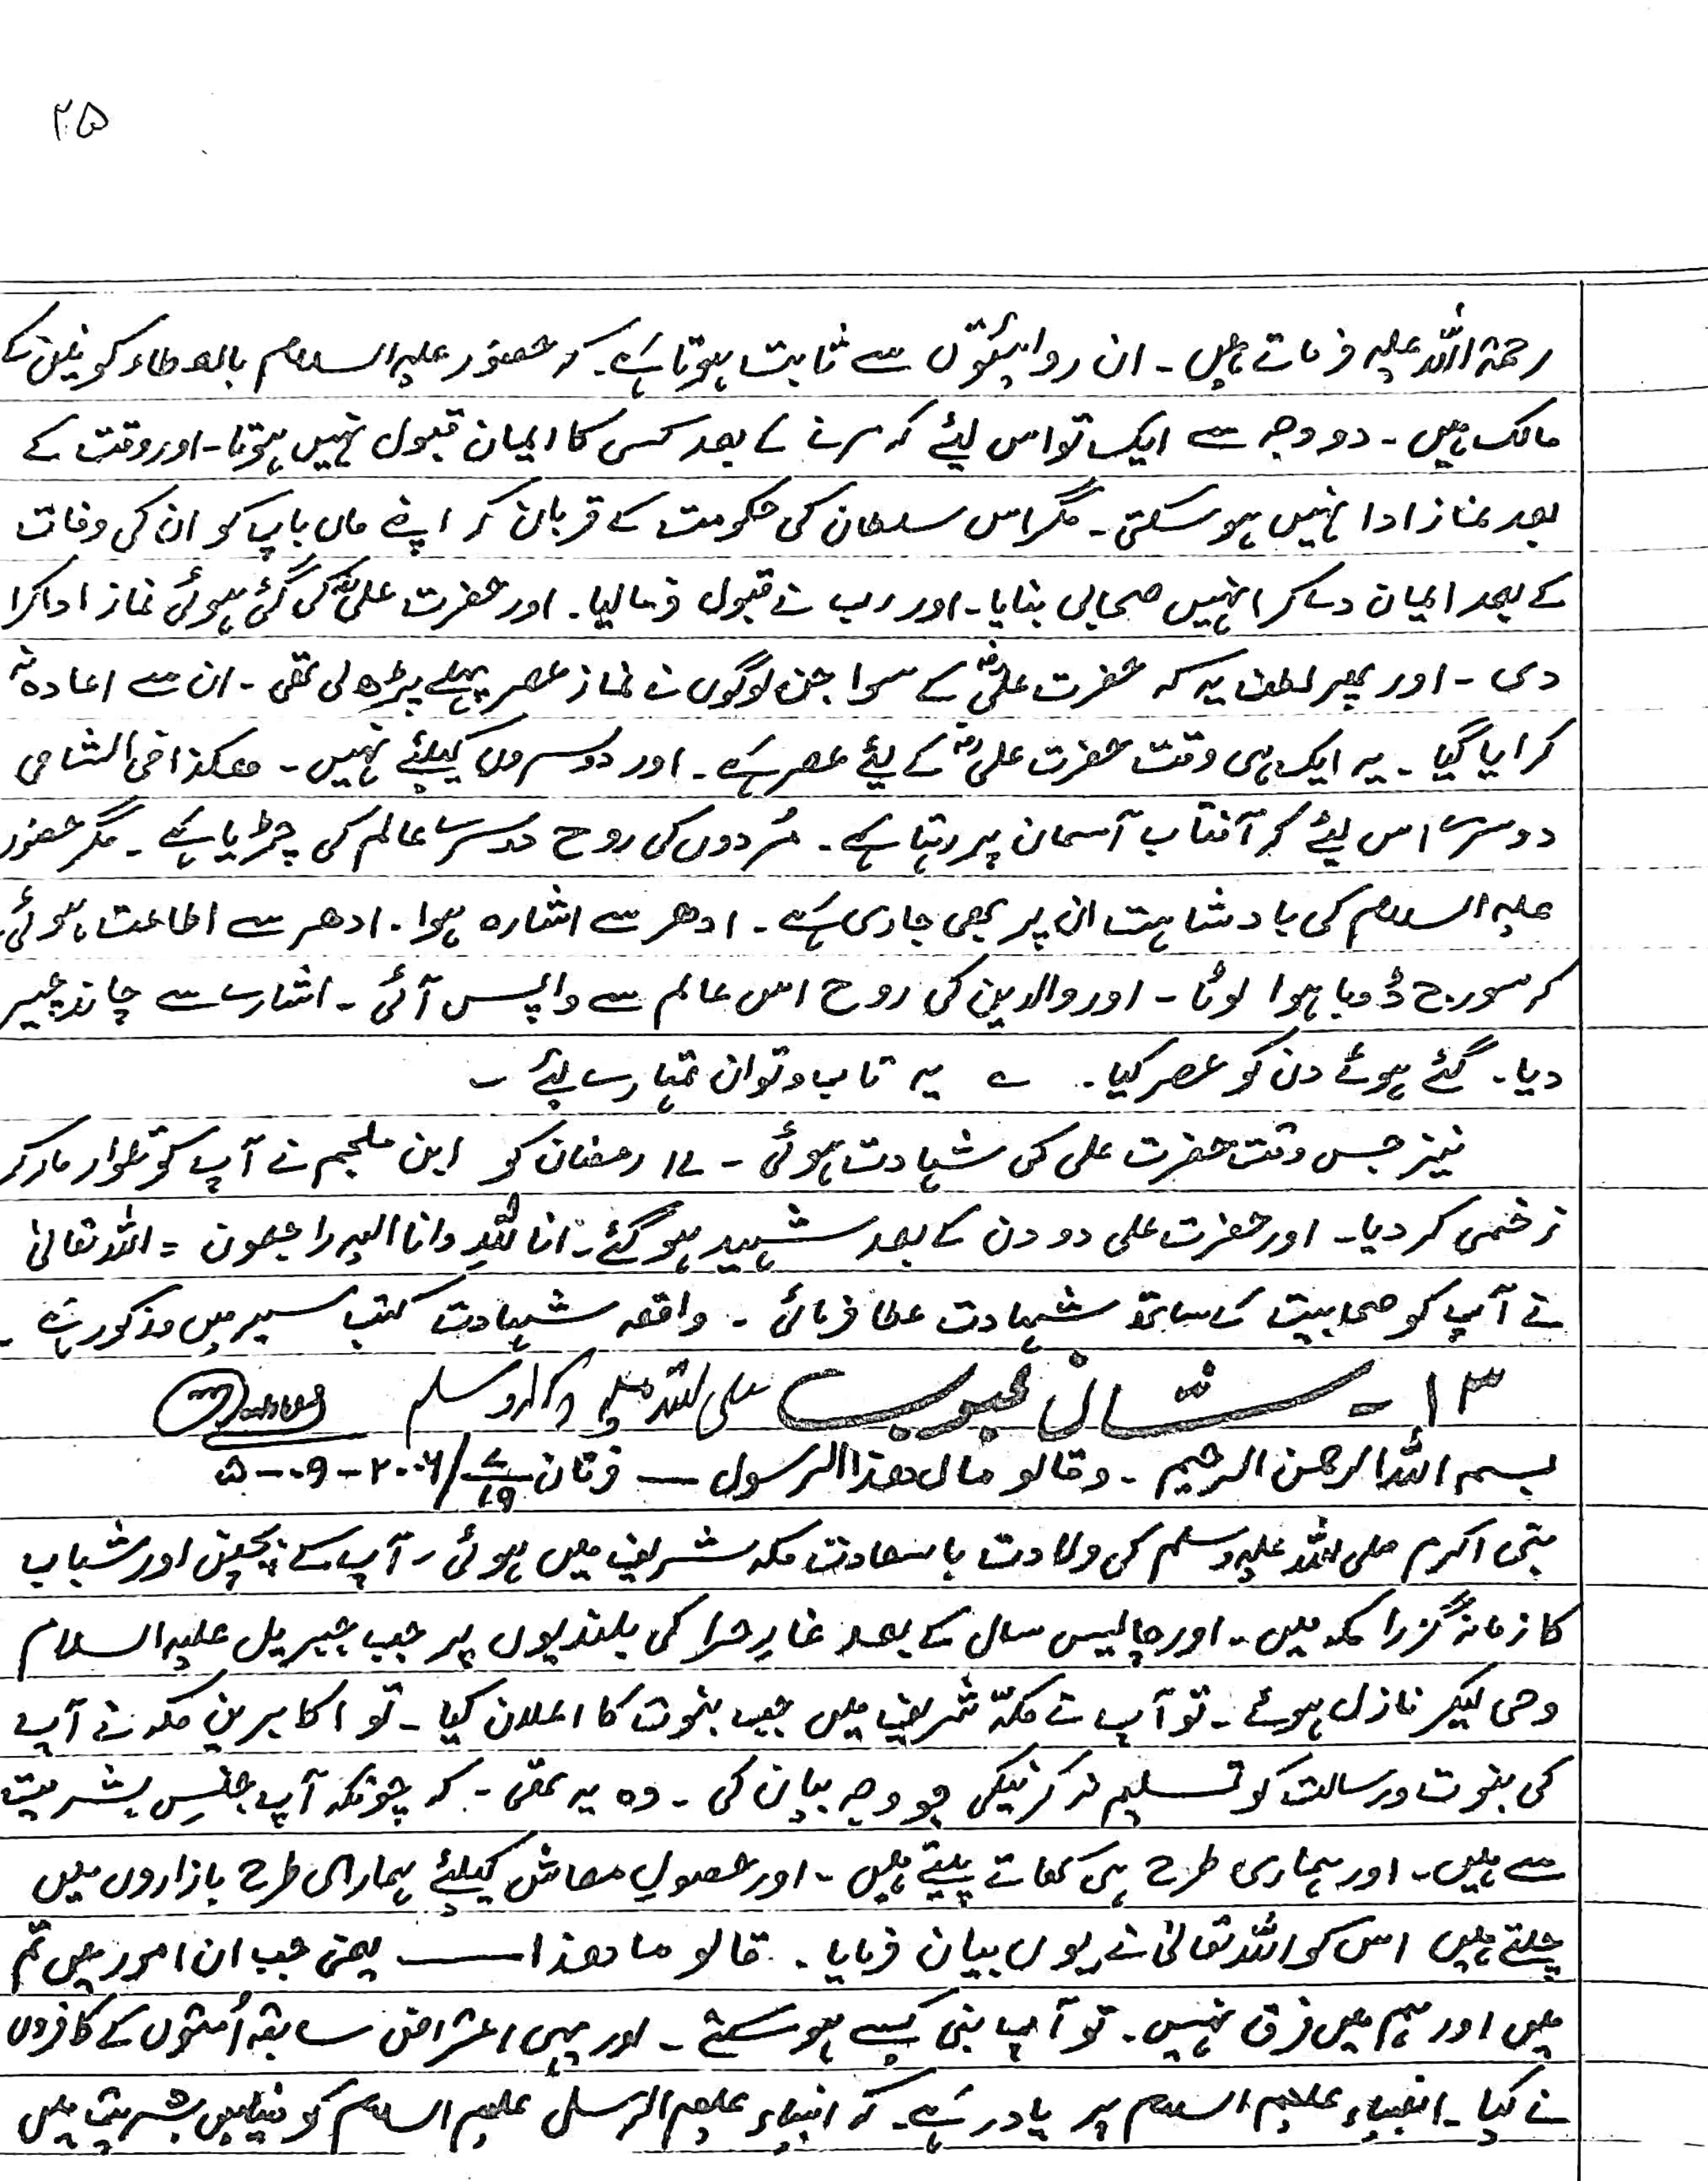 ۲۵
رحمۃ اللہ علیہ فرماتے ہیں ۔ ان روایتوں سے ثابت ہوتا ہے ۔ کہ حضور علیہ السلام بالعطاء کونین کے
مالک ہیں ۔ دو وجہ سے ایک تو اس لیئے کہ مرنے کے بعد کسی کا ایمان قبول نہیں ہوتا ۔ اور وقت کے
بعد نماز ادا نہیں ہو سکتی ۔ مگر اس سلطان کی حکومت کے قربان کہ اپنے ماں باپ کو ان کی وفات
کے بعد ایمان دے کر انہیں صحابی بنایا ۔ اور رب نے قبول فرما لیا ۔ اور حضرت علیؓ کی گئی ہوئی نماز ادا کرا
دی ۔ اور پھر لطف یہ کہ حضرت علیؓ کے سوا جن لوگوں نے نماز عصر پہلے پڑھ لی تھی ۔ ان سے اعادہ نہ
کرایا گیا ۔ یہ ایک ہی وقت حضرت علیؓ کے لیئے عصر ہے ۔ اور دوسروں کیلئے نہیں ۔ ھکذا فی الشامی
دوسرے اس لیئے کہ آفتاب آسمان پر رہتا ہے ۔ مُردوں کی روح دوسرے عالم کی چڑیا ہے ۔ مگر حضور
علیہ السلام کی بادشاہت ان پر بھی جاری ہے ۔ ادھر سے اشارہ ہوا ۔ ادھر سے اطاعت ہوئی ۔
کہ سورج ڈوبا ہوا لوٹا ۔ اور والدین کی روح اس عالم سے واپس آئی ۔ اشارے سے چاند چیر
دیا ۔ گئے ہوئے دن کو عصر کیا ۔ ے یہ تاب و توان تمہارے لیئے ۔
نیز جس وقت حضرت علی کی شہادت ہوئی ۔ ۱۷ رمضان کو ابن ملجم نے آپ کو تلوار مار کر
زخمی کر دیا ۔ اور حضرت علی دو دن کے بعد شہید ہو گئے ۔ انا للہ وانا الیہ راجعون = اللہ تعالیٰ
نے آپ کو صحابیت کے ساتھ شہادت عطا فرمائی ۔ واقعہ شہادت کتب سیر میں مذکور ہے ۔
۱۳ ۔ شان محبوب صلی اللہ علیہ وآلہ وسلم
بسم اللہ الرحمن الرحیم ۔ وقالو مال ھذا الرسول — فرقان ۷/۱۹ / ۲۰۰۶-۰۹-۵
نبی اکرم صلی اللہ علیہ وسلم کی ولادت با سعادت مکہ شریف میں ہوئی ۔ آپ کے بچپن اور شباب
کا زمانہ گزرا مکہ میں ۔ اور چالیس سال کے بعد غارِ حرا کی بلندیوں پر جب جبریل علیہ السلام
وحی لیکر نازل ہوئے ۔ تو آپ نے مکہّ شریف میں جب نبوت کا اعلان کیا ۔ تو اکابرین مکہ نے آپ
کی نبوت و رسالت کو تسلیم نہ کرنیکی جو وجہ بیان کی ۔ وہ یہ تھی ۔ کہ چونکہ آپ جنسِ بشریت
سے ہیں ۔ اور ہماری طرح ہی کھاتے پیتے ہیں ۔ اور حصولِ معاش کیلئے ہماری طرح بازاروں میں
چلتے ہیں اس کو اللہ تعالیٰ نے یوں بیان فرمایا ۔ قالو ما ھذا — یعنی جب ان امور میں تم
میں اور ہم میں فرق نہیں ۔ تو آپ نبی کیسے ہو سکتے ۔ اور یہی اعتراض سابقہ اُمتوں کے کافروں
نے کیا ۔ انبیاء علیہم السلام پر یاد رہے ۔ کہ انبیاء علیہم الرسل علیہم السلام کو بشریت میں